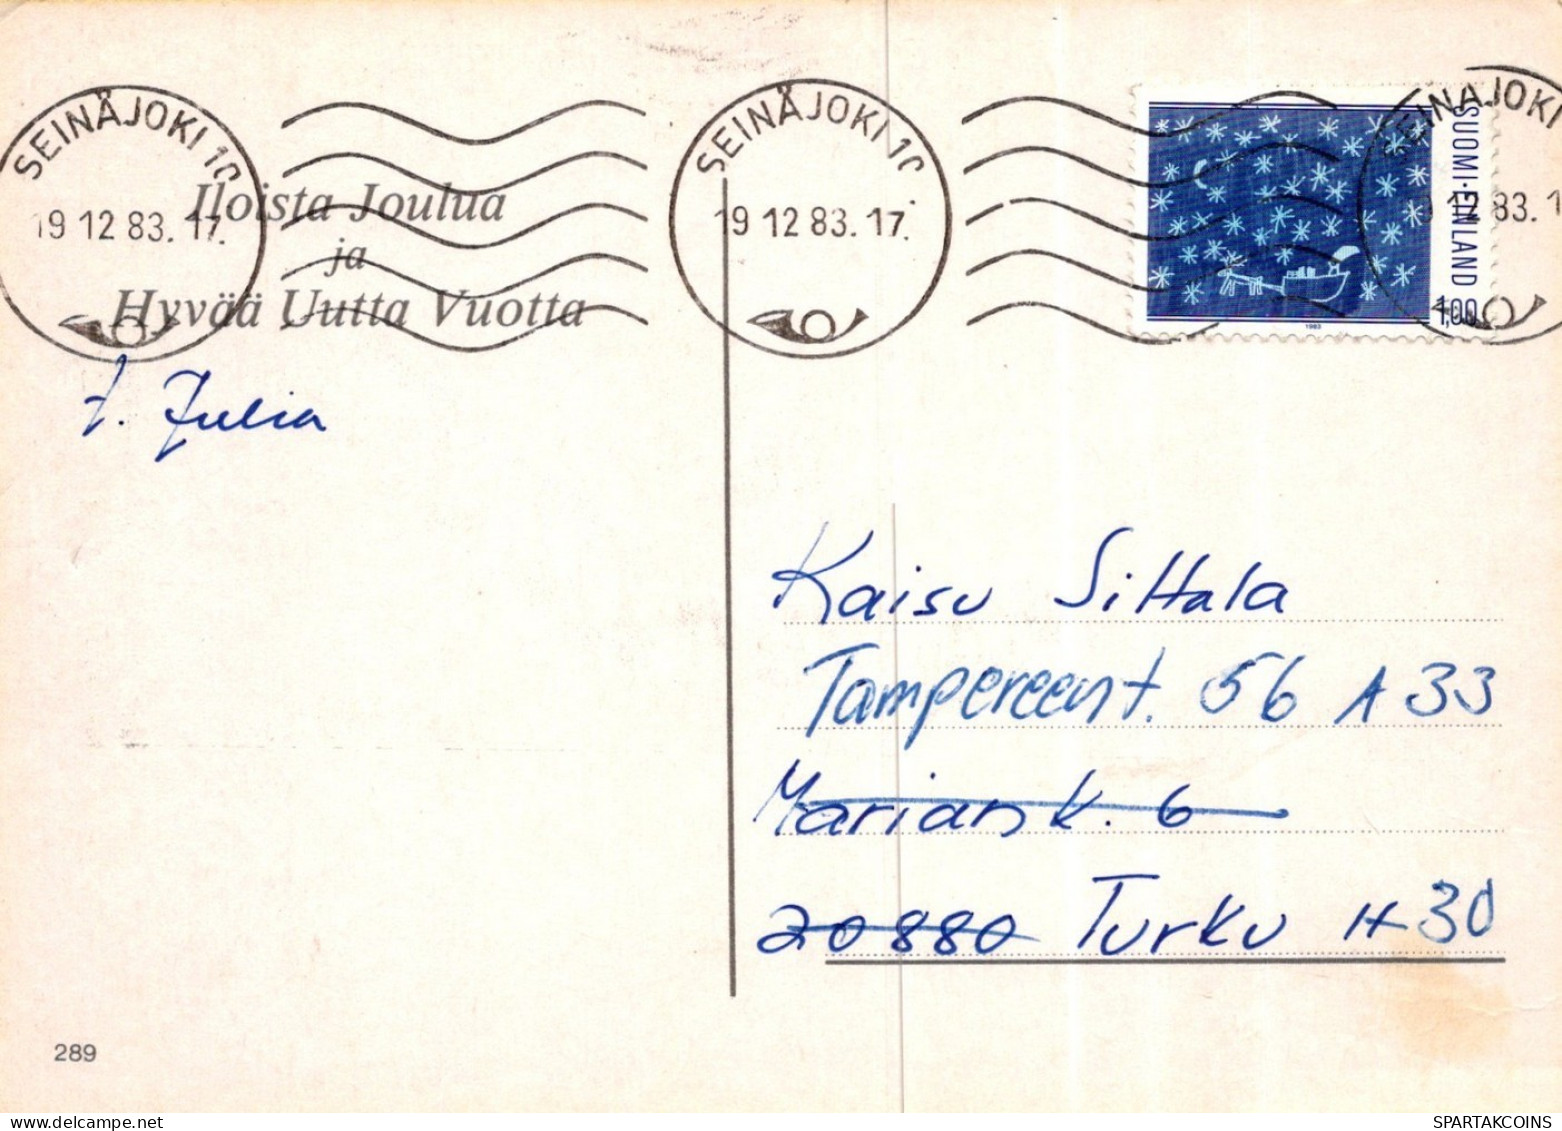 SEINÄJOKI 10
19 12 83. 17.
SEINÄJOKI 10
19 12 83. 17.
SEINÄJOKI
12 83. 1
SUOMI·FINLAND
1,00
1983
Iloista Joulua
ja
Hyvää Uutta Vuotta
t. Julia
Kaisu Sittala
Tampereent. 56 A 33
Mariank. 6
20880 Turku 30
289
SPARTAKCOINS